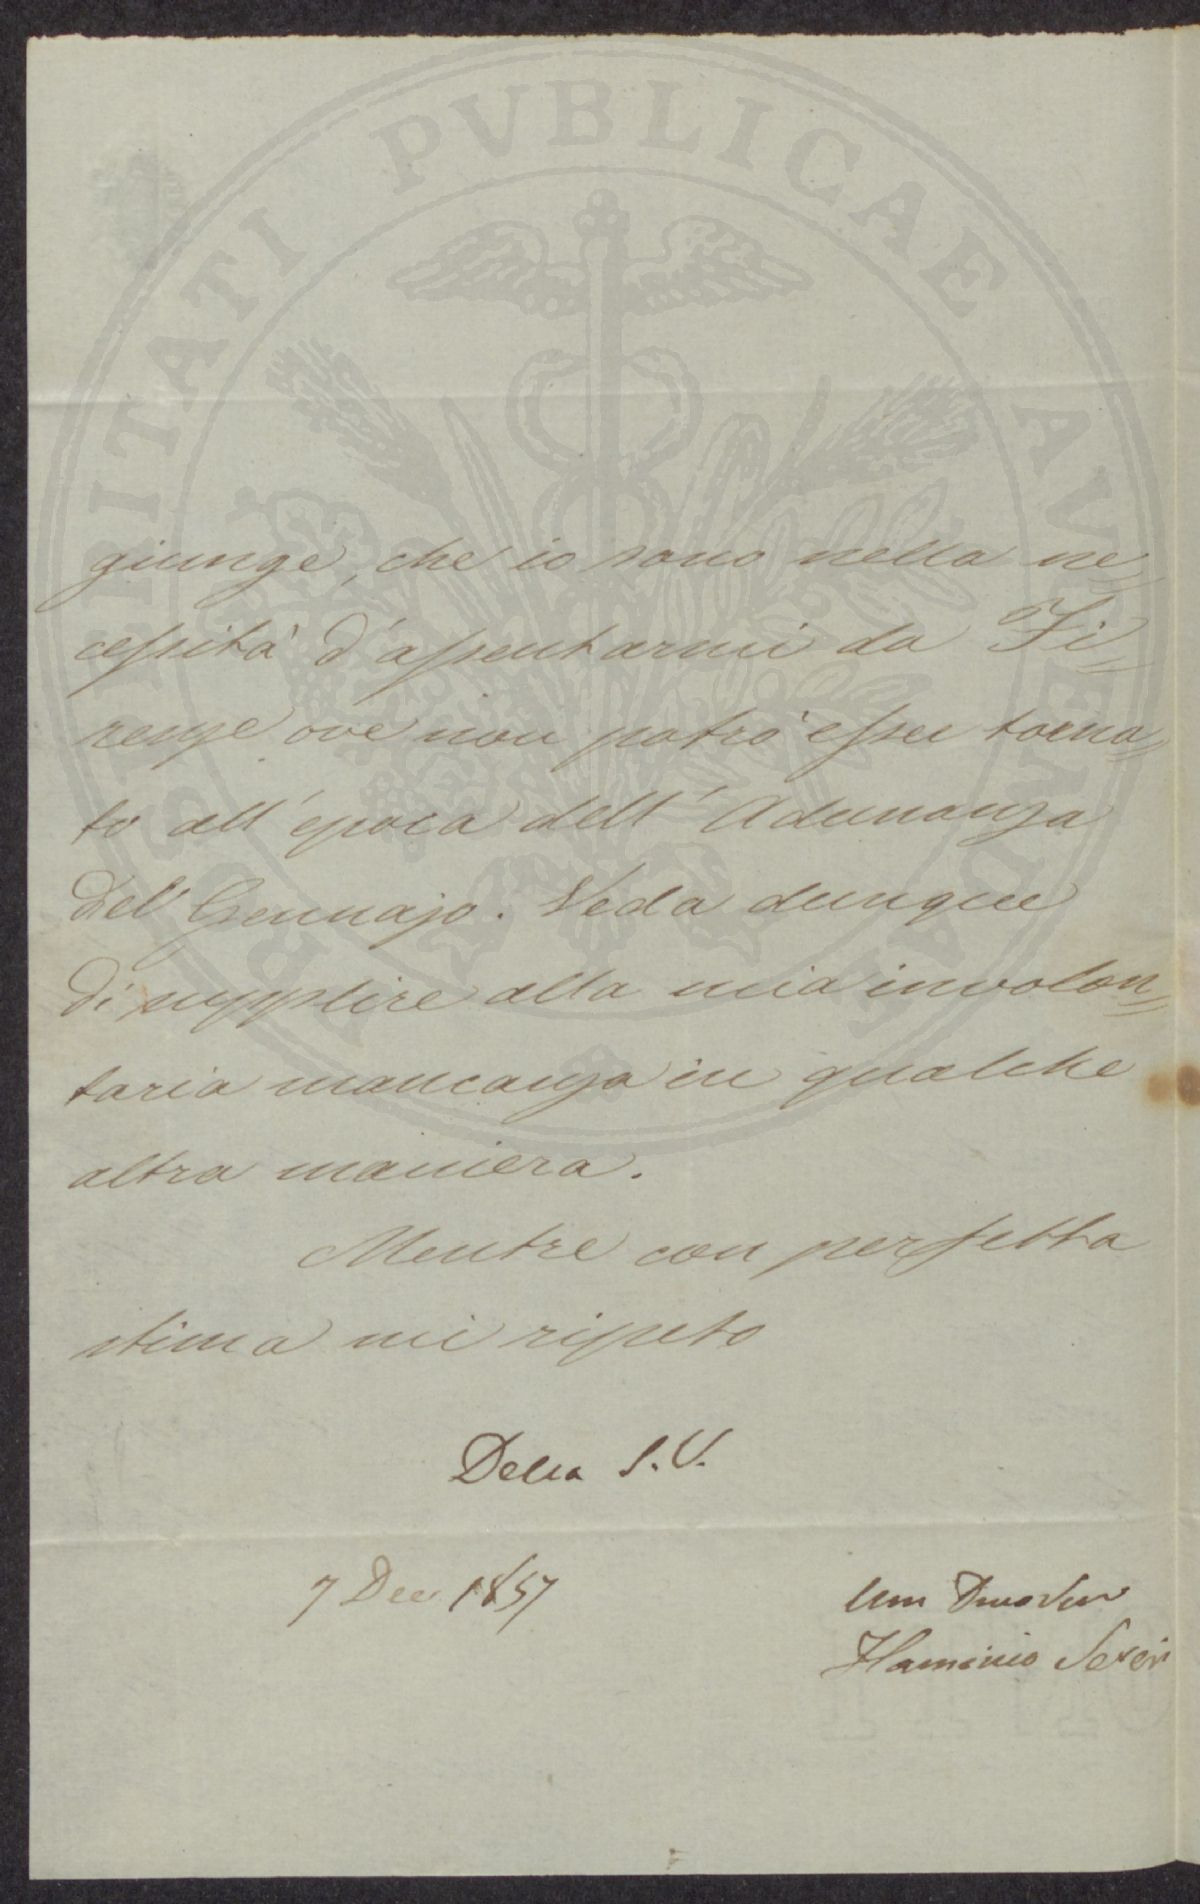 PROSPERITATI PVBLICAE AVGENDAE
giunge, che io sono nella ne=
cessità d'assentarmi da Fi=
renze ove non potrò esser torna=
to all'epoca dell'Adunanza
del Gennajo. Veda dunque
di supplire alla mia involon=
taria mancanza in qualche
altra maniera.
Mentre con perfetta
stima mi ripeto
Della S. V.
7 Dec 1857
Um
Flaminio Severi